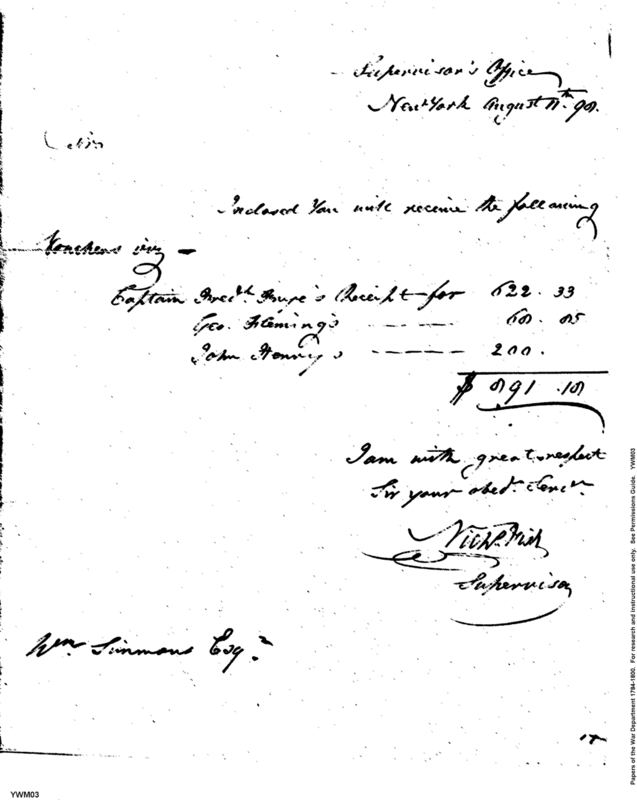 Supervisor's Office
New York August 98.
Sir
Inclosed You will receive the following
Vouchers viz
Captain Fredk. Frye's Receipt for 622.33
Geo. Fleming's ---- 68.85
John Henry's ---- 200.
$ 891.18
I am with great respect
Sir your obedt. Servt.
Nichs. Fish
Supervisor
Wm. Simmons Esqr.
YWM03
Papers of the War Department 1784-1800. For research and instructional use only. See Permissions Guide. YWM03